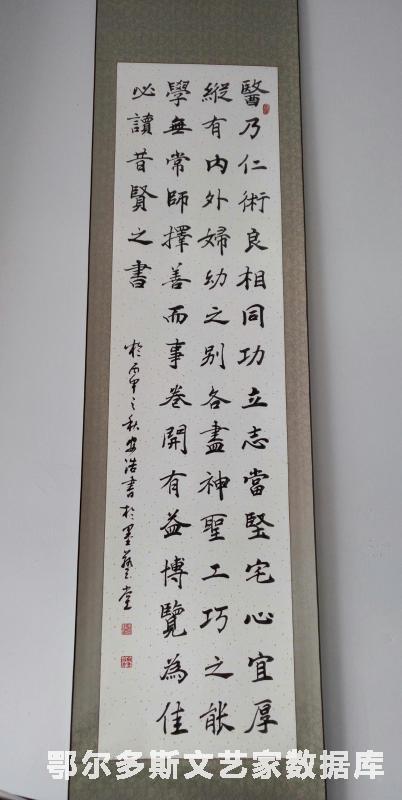 醫乃仁術良相同功立志當堅宅心宜厚
縱有内外婦幼之别各盡神聖工巧之能
學無常師擇善而事卷開有益博覽為佳
必讀昔賢之書
於丙申之秋安浩書於墨藝堂
鄂尔多斯文艺家数据库